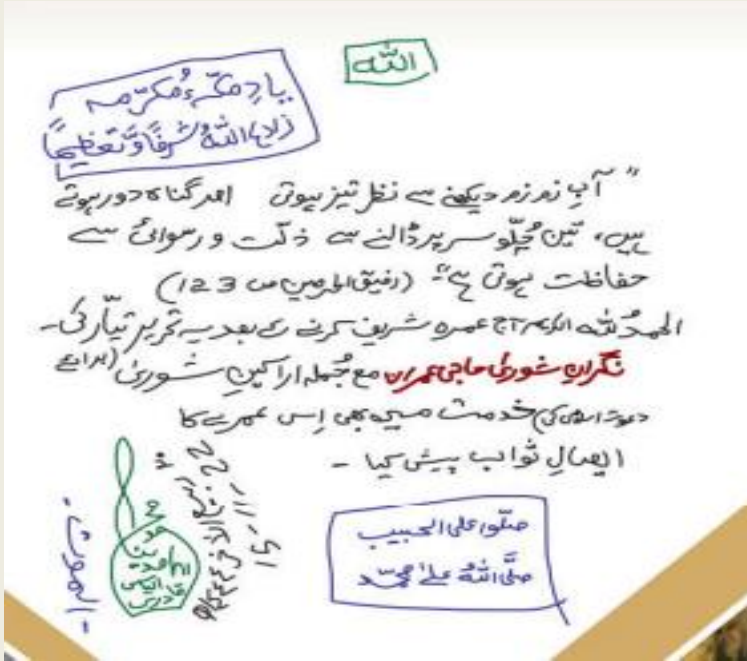 اللہ
یادِ مکّہ مُکرّمہ
زادہا اللہُ شرفًا وَّ تعظیمًا
" آبِ زم زم دیکھنے سے نظر تیز ہوتی اور گناہ دور ہوتے
ہیں، تین چُلّو سر پر ڈالنے سے ذلّت و رسوائی سے
حفاظت ہوتی ہے " (رفیق الحرمین ص 123)
الحمدُ للہ الکریم آج عمرہ شریف کرنے کے بعد یہ تحریر تیّار کی۔
نگرانِ شوریٰ حاجی عمران مع جُملہ اراکینِ شوریٰ (برائے
دعوتِ اسلامی) کی خدمت میں بھی اِس عمرے کا
ایصالِ ثواب پیش کیا ۔
صلّوا علی الحبیب
صلَّی اللہُ علیٰ محمّد
الموت